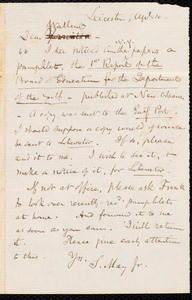 Leicester, Apl. 10.
Wallcut
Dear
I see noticed in the N.Y. papers a
pamphlet, the 1st Report of the
Board of Education for the Department
of the Gulf - published at New Orleans
- A copy was sent to the Gulf Port.
I should suppose a copy would of course
be sent to Liberator. If so, please
send it to me. I wish to see it, &
make a notice of it, for Liberator.
If not at office, please ask Frank
to look over recently-rec'd pamphlets
at home. And forward it to me
as soon as you can. I will return
it. Please give early attention
to this.
Yrs,
S. May Jr.